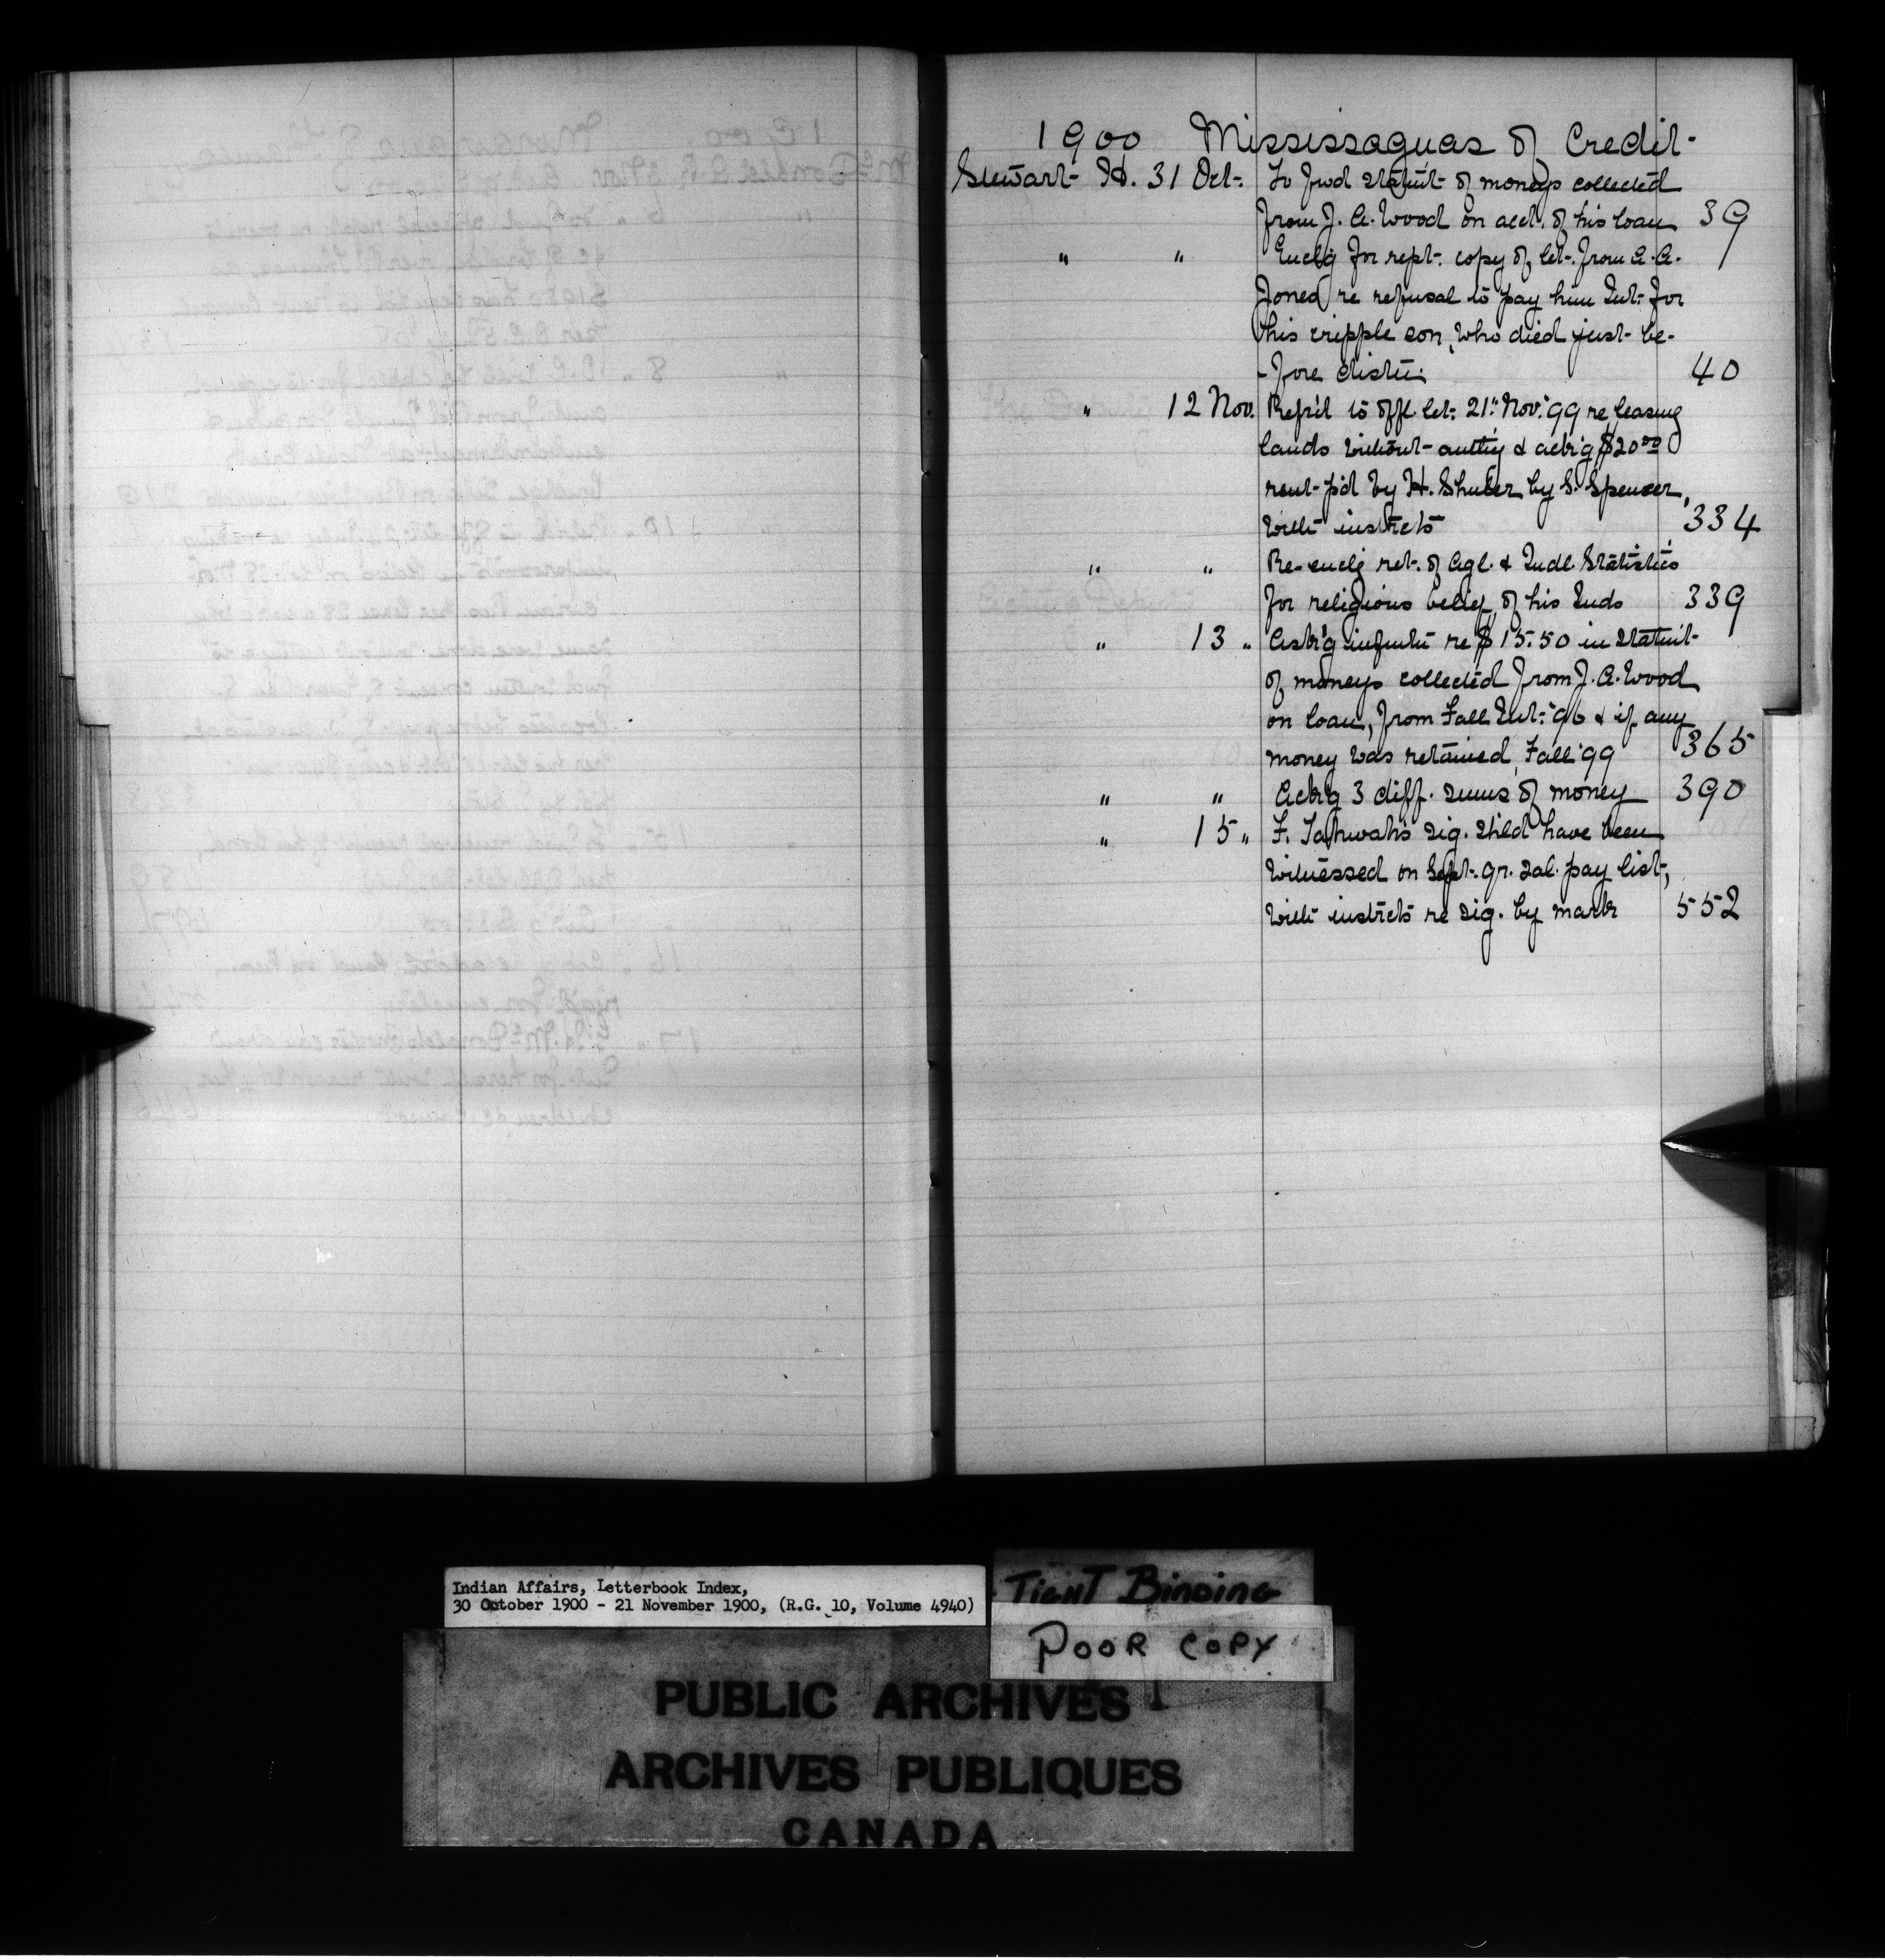 1900 Mississaguas of Credit-
Stewart H. 31 Oct. To fwd statmt of moneys collected
from J. A. Wood on acct. of his loan 39
" " Enclg for rept. copy of let. from A. A.
Jones re refusal to pay him Int. for
his cripple son, who died just be-
-fore distn. 40
" 12 Nov. Refd to offl. let. 21st Nov. '99 re leasing
lands without authy & ackg $20.00
rent pd by H. Shuler by S. Spencer,
with instrcts 334
" " Re-enclg ret. of Agl. & Indl. Statistics
for religious belief of his Inds 339
" 13 " Askg infmtn re $15.50 in statmt
of moneys collected from J. A. Wood
on loan, from Fall Int. '96 & if any
money was retained, Fall '99 365
" " Ackg 3 diff. sums of money 390
" 15 " F. sig. shld have been
witnessed on Sept. qr. sal. pay list,
with instrcts re sig. by mark 552
Indian Affairs, Letterbook Index,
30 October 1900 - 21 November 1900, (R.G. 10, Volume 4940)
TIGHT BINDING
POOR COPY
PUBLIC ARCHIVES
ARCHIVES PUBLIQUES
CANADA